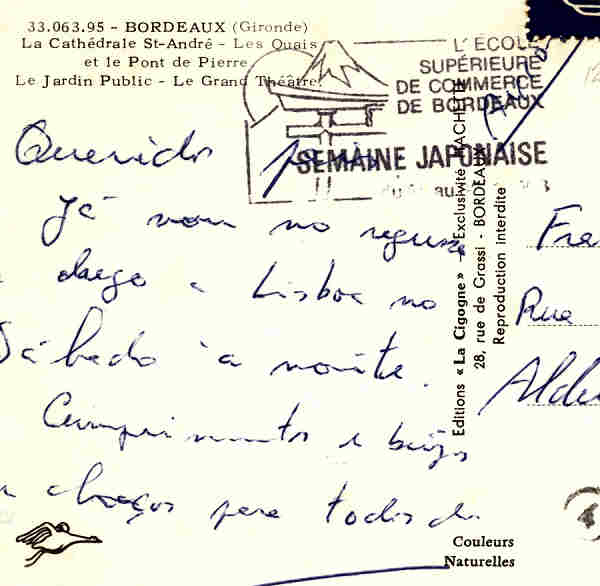 33.063.95 - BORDEAUX (Gironde)
La Cathédrale St-André - Les Quais
et le Pont de Pierre
Le Jardin Public - Le Grand Théâtre
L'ÉCOLE
SUPÉRIEURE
DE COMMERCE
DE BORDEAUX
SEMAINE JAPONAISE
Queridos pais
Já vou no regresso
chego a Lisboa no
Sábado à noite.
Cumprimentos e beijos
e abraços para todos do
Editions « La Cigogne » - Exclusivité HACHETTE
28, rue de Grassi - BORDEAUX
Reproduction interdite
Fra
Rua
Alde
Couleurs
Naturelles